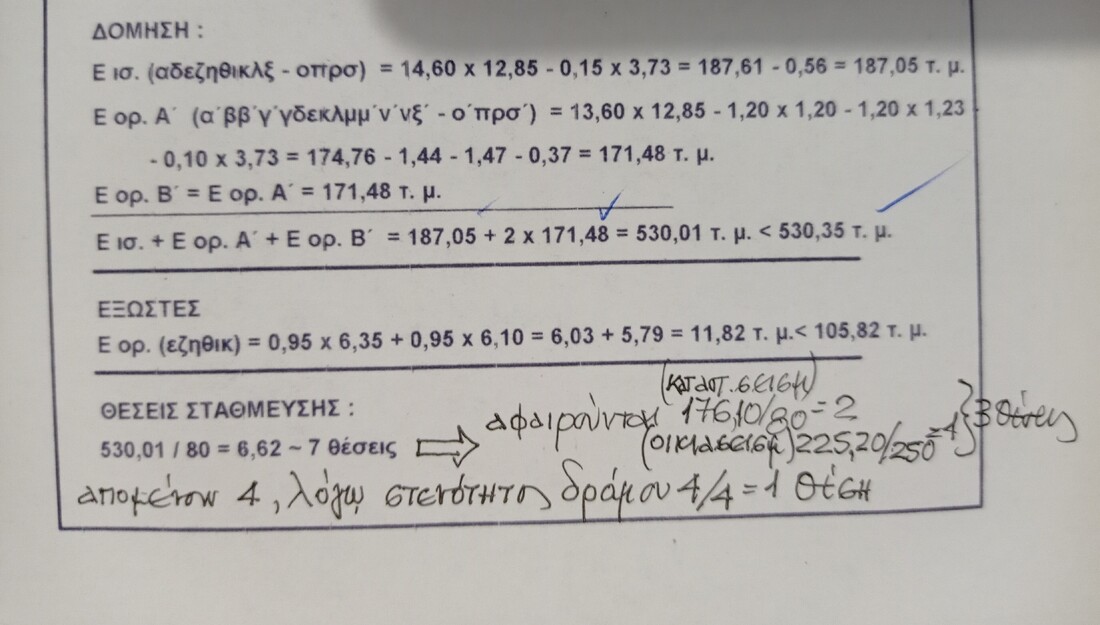 ΔΟΜΗΣΗ :
Ε ισ. (αδεζηθικλξ - οπρσ) = 14,60 x 12,85 - 0,15 x 3,73 = 187,61 - 0,56 = 187,05 τ. μ.
Ε ορ. Α΄ (α΄ββ΄γ΄γδεκλμμ΄ν΄νξ΄ - ο΄πρσ΄) = 13,60 x 12,85 - 1,20 x 1,20 - 1,20 x 1,23
- 0,10 x 3,73 = 174,76 - 1,44 - 1,47 - 0,37 = 171,48 τ. μ.
Ε ορ. Β΄ = Ε ορ. Α΄ = 171,48 τ. μ.
Ε ισ. + Ε ορ. Α΄ + Ε ορ. Β΄ = 187,05 + 2 x 171,48 = 530,01 τ. μ. < 530,35 τ. μ.
ΕΞΩΣΤΕΣ
Ε ορ. (εζηθικ) = 0,95 x 6,35 + 0,95 x 6,10 = 6,03 + 5,79 = 11,82 τ. μ.< 105,82 τ. μ.
ΘΕΣΕΙΣ ΣΤΑΘΜΕΥΣΗΣ :
530,01 / 80 = 6,62 ~ 7 θέσεις
(καταστ. σεισμ)
αφαιρούνται 176,10/80 = 2
225,20/250 = 1 } 3 θέσεις
απομένουν 4, λόγω στενότητος δρόμου 4/4 = 1 θέση